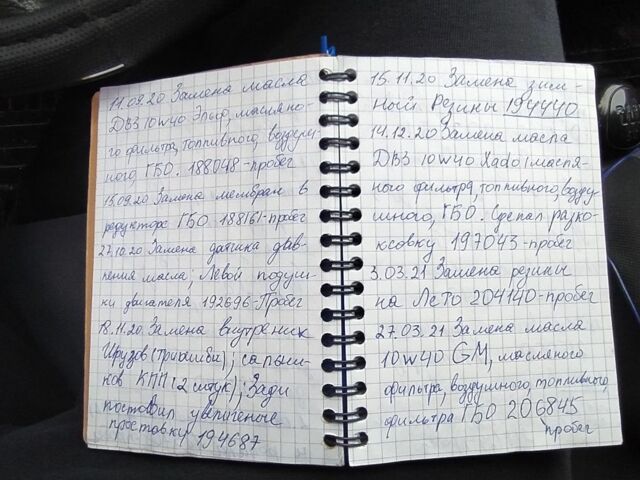 11.09.20 Замена масла
ДВЗ 10w40 Эльф, масляно-
го фильтра, топливного, воздуш-
ного, ГБО. 188048 - пробег
15.09.20 Замена мембран в
редукторе ГБО 188161 - пробег
27.10.20 Замена датчика дав-
ления масла, Левой подуш-
ки двигателя 192696 - Пробег
18.11.20. Замена внутрених
(трипо
; сальни-
ков КПП (2 штук); Зади
поставил увеличеные
простовку 194687
15.11.20 Замена зим-
ней Резины 194440
14.12.20 Замена масла
ДВЗ 10w40 Xado, масля-
ного фильтра, топливного, возду-
шного, ГБО. Сделал раско-
ксовку 197043 - пробег
3.03.21 Замена резины
на Лето 204140 - пробег
27.03.21 Замена масла
10w40 GM, масляного
фильтра, воздушного, топливного,
фильтра ГБО 206845
пробег